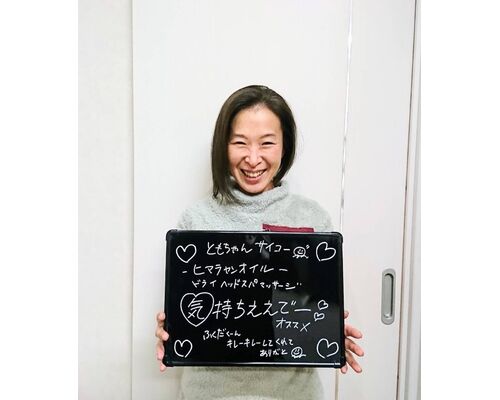 ともちゃん サイコー
- ヒマラヤンオイル -
ドライヘッドスパマッサージ
気持ちええでー
オススメ
ふくだくーん
キレーキレーしてくれて
ありがと